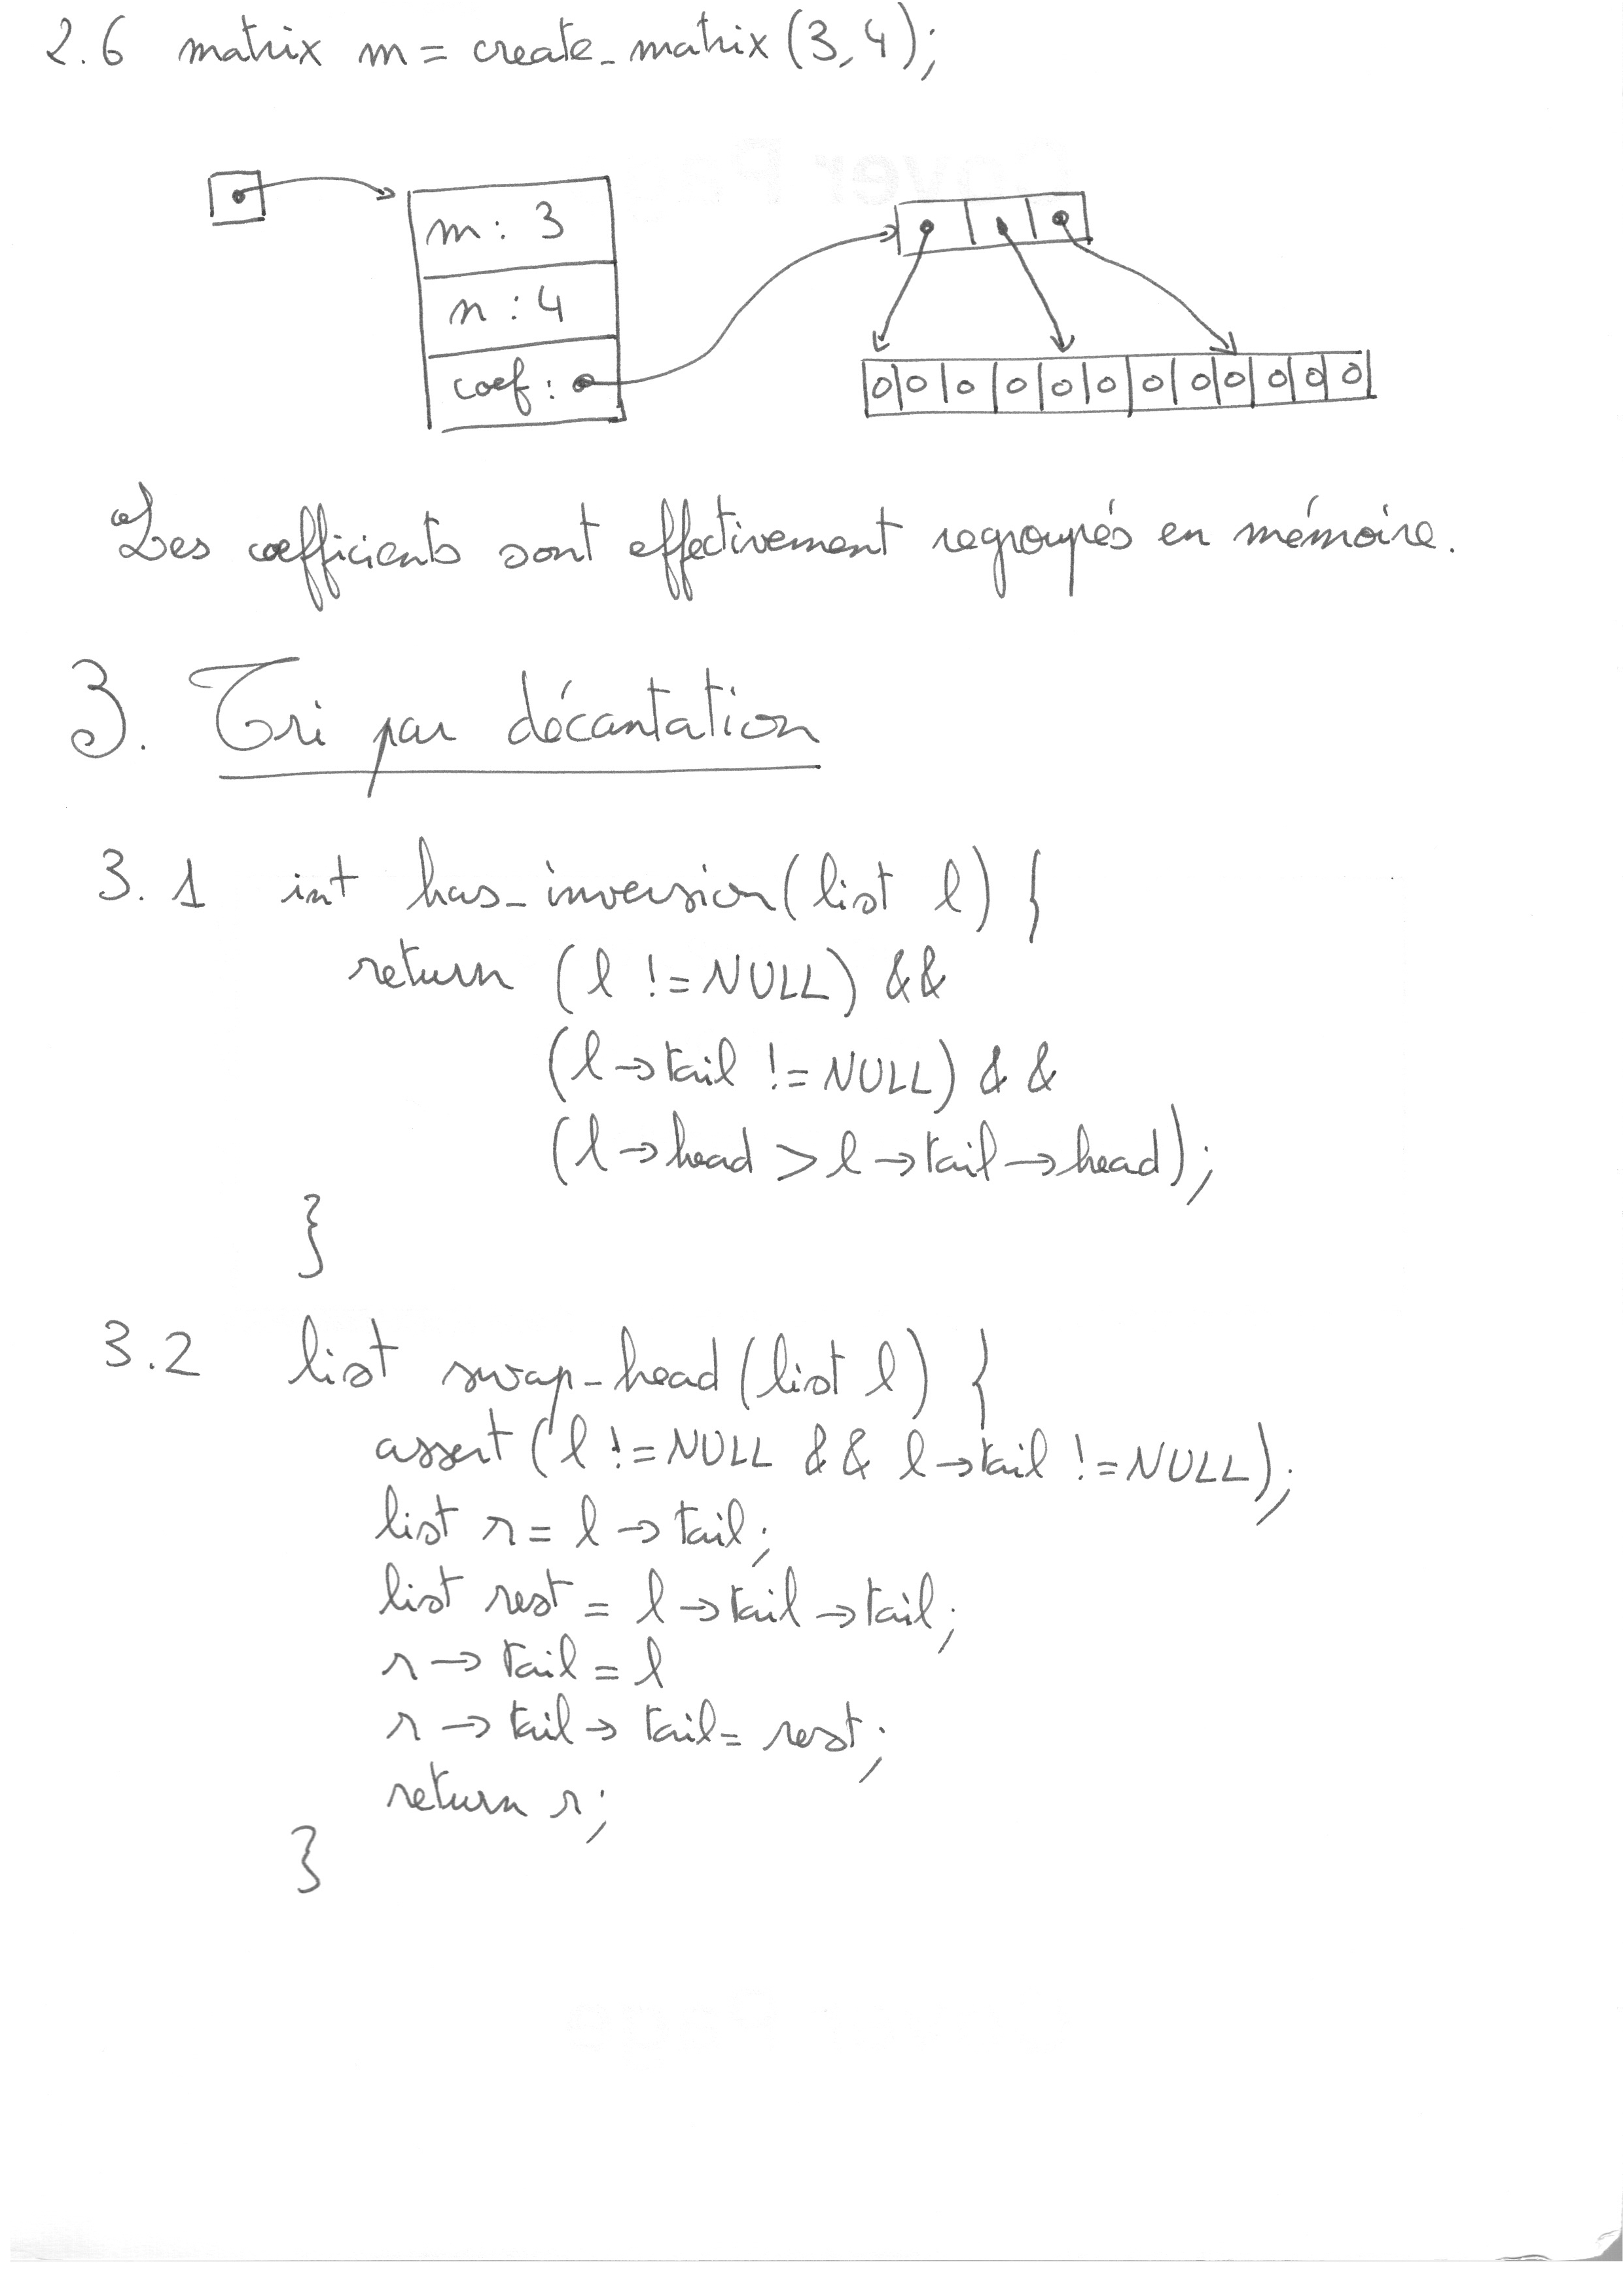 2.6 matrix m = create_matrix (3, 4);
m : 3
n : 4
coef :
0 0 0 0 0 0 0 0 0 0 0 0
Les coefficients sont effectivement regroupés en mémoire.
3. Tri par décantation
3.1 int has_inversion(list l) {
return (l != NULL) &&
(l → tail != NULL) & &
(l → head > l → tail → head);
}
3.2 list swap_head (list l) {
assert (l != NULL && l → tail != NULL);
list r = l → tail;
list rest = l → tail → tail;
r → tail = l
r → tail → tail = rest;
return r;
}